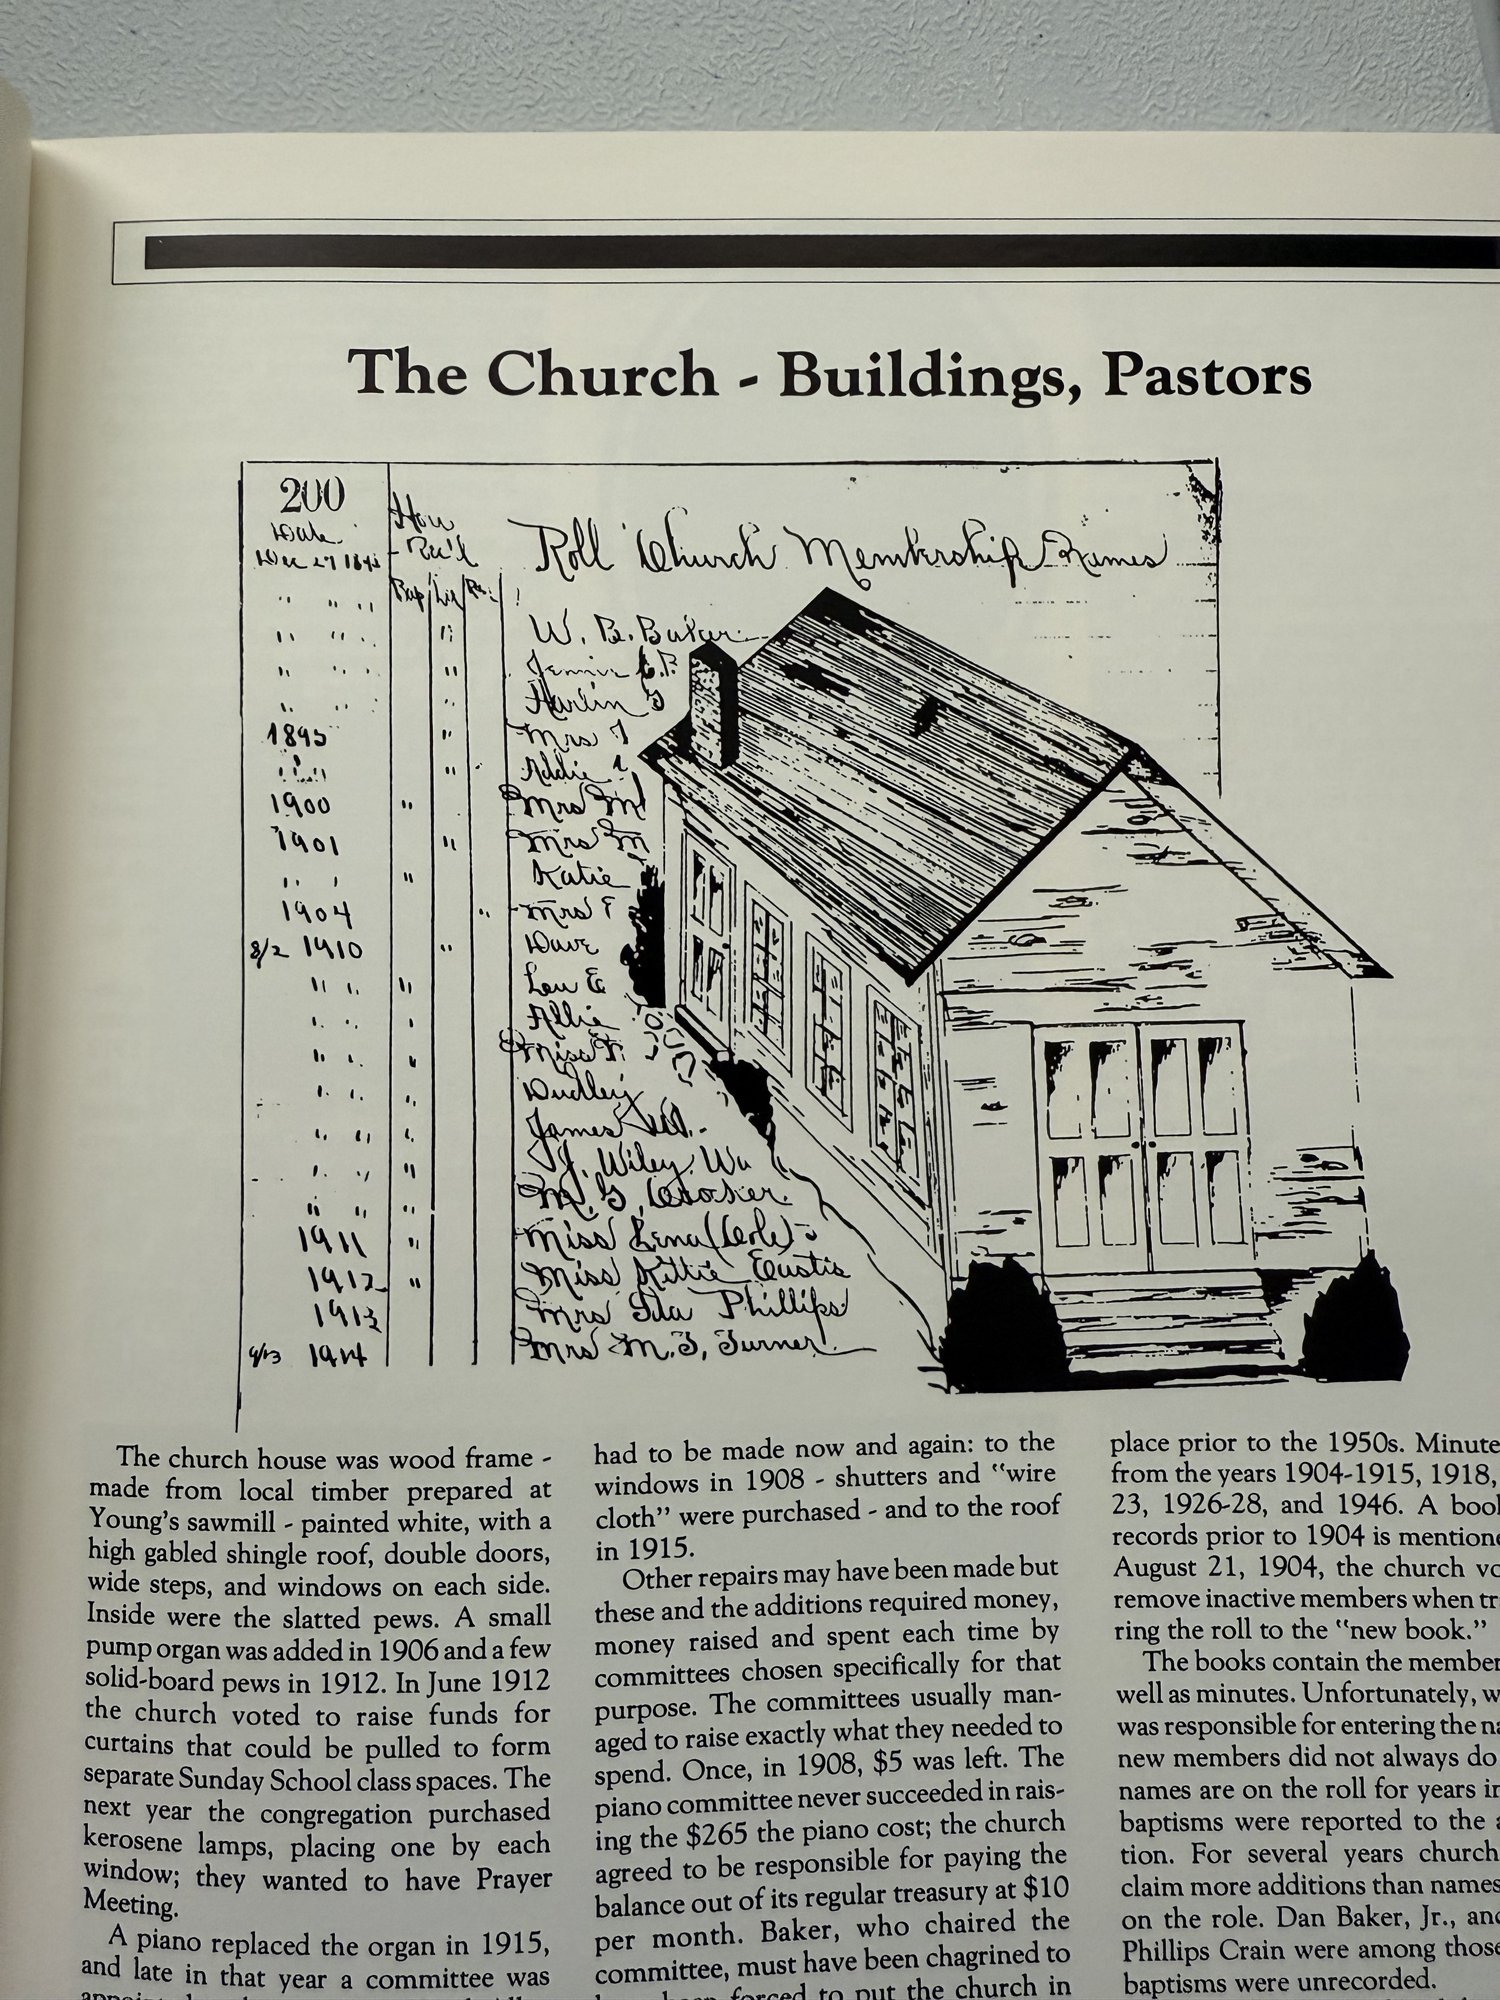 The Church - Buildings, Pastors
200
Date
How
Rec'd
Roll Church Membership Names
W. B. Baker
Harlin
1895
Mrs
Addie
1900
"
Mrs M
1901
"
Mrs M
Katie
1904
"
Mrs
8/2 1910
"
Dave
Lou E
Allie
Miss
Dudley
James W.
J. Wiley Wa
M. G. Crocker
1911
"
Miss Lena
1912
"
Miss Kittie Eustis
1913
Mrs Ida Phillips
1914
Mrs M. T. Turner
The church house was wood frame -
made from local timber prepared at
Young's sawmill - painted white, with a
high gabled shingle roof, double doors,
wide steps, and windows on each side.
Inside were the slatted pews. A small
pump organ was added in 1906 and a few
solid-board pews in 1912. In June 1912
the church voted to raise funds for
curtains that could be pulled to form
separate Sunday School class spaces. The
next year the congregation purchased
kerosene lamps, placing one by each
window; they wanted to have Prayer
Meeting.
A piano replaced the organ in 1915,
and late in that year a committee was
had to be made now and again: to the
windows in 1908 - shutters and "wire
cloth" were purchased - and to the roof
in 1915.
Other repairs may have been made but
these and the additions required money,
money raised and spent each time by
committees chosen specifically for that
purpose. The committees usually man-
aged to raise exactly what they needed to
spend. Once, in 1908, $5 was left. The
piano committee never succeeded in rais-
ing the $265 the piano cost; the church
agreed to be responsible for paying the
balance out of its regular treasury at $10
per month. Baker, who chaired the
committee, must have been chagrined to
forced to put the church in
place prior to the 1950s. Minute
from the years 1904-1915, 1918,
23, 1926-28, and 1946. A book
records prior to 1904 is mentione
August 21, 1904, the church vo
remove inactive members when tr
ring the roll to the "new book."
The books contain the member
well as minutes. Unfortunately, w
was responsible for entering the na
new members did not always do
names are on the roll for years in
baptisms were reported to the a
tion. For several years church
claim more additions than names
on the role. Dan Baker, Jr., and
Phillips Crain were among those
baptisms were unrecorded.